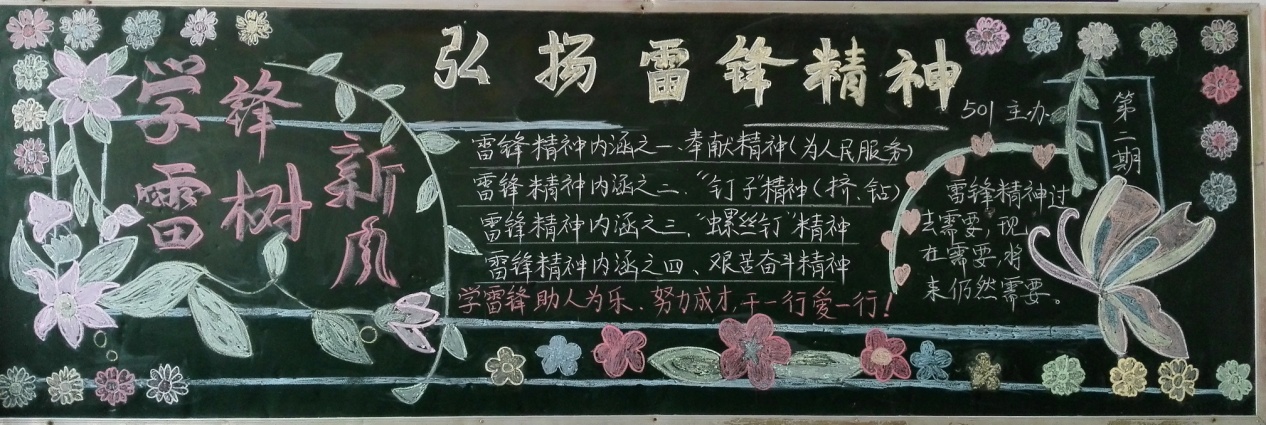 弘扬雷锋精神
学雷锋树新风
501 主办
第二期
雷锋精神内涵之一、奉献精神(为人民服务)
雷锋精神内涵之二、“钉子”精神(挤、钻)
雷锋精神内涵之三、“螺丝钉”精神
雷锋精神内涵之四、艰苦奋斗精神
学雷锋助人为乐、努力成才干一行爱一行!
雷锋精神过
去需要,现
在需要,将
来仍然需要。